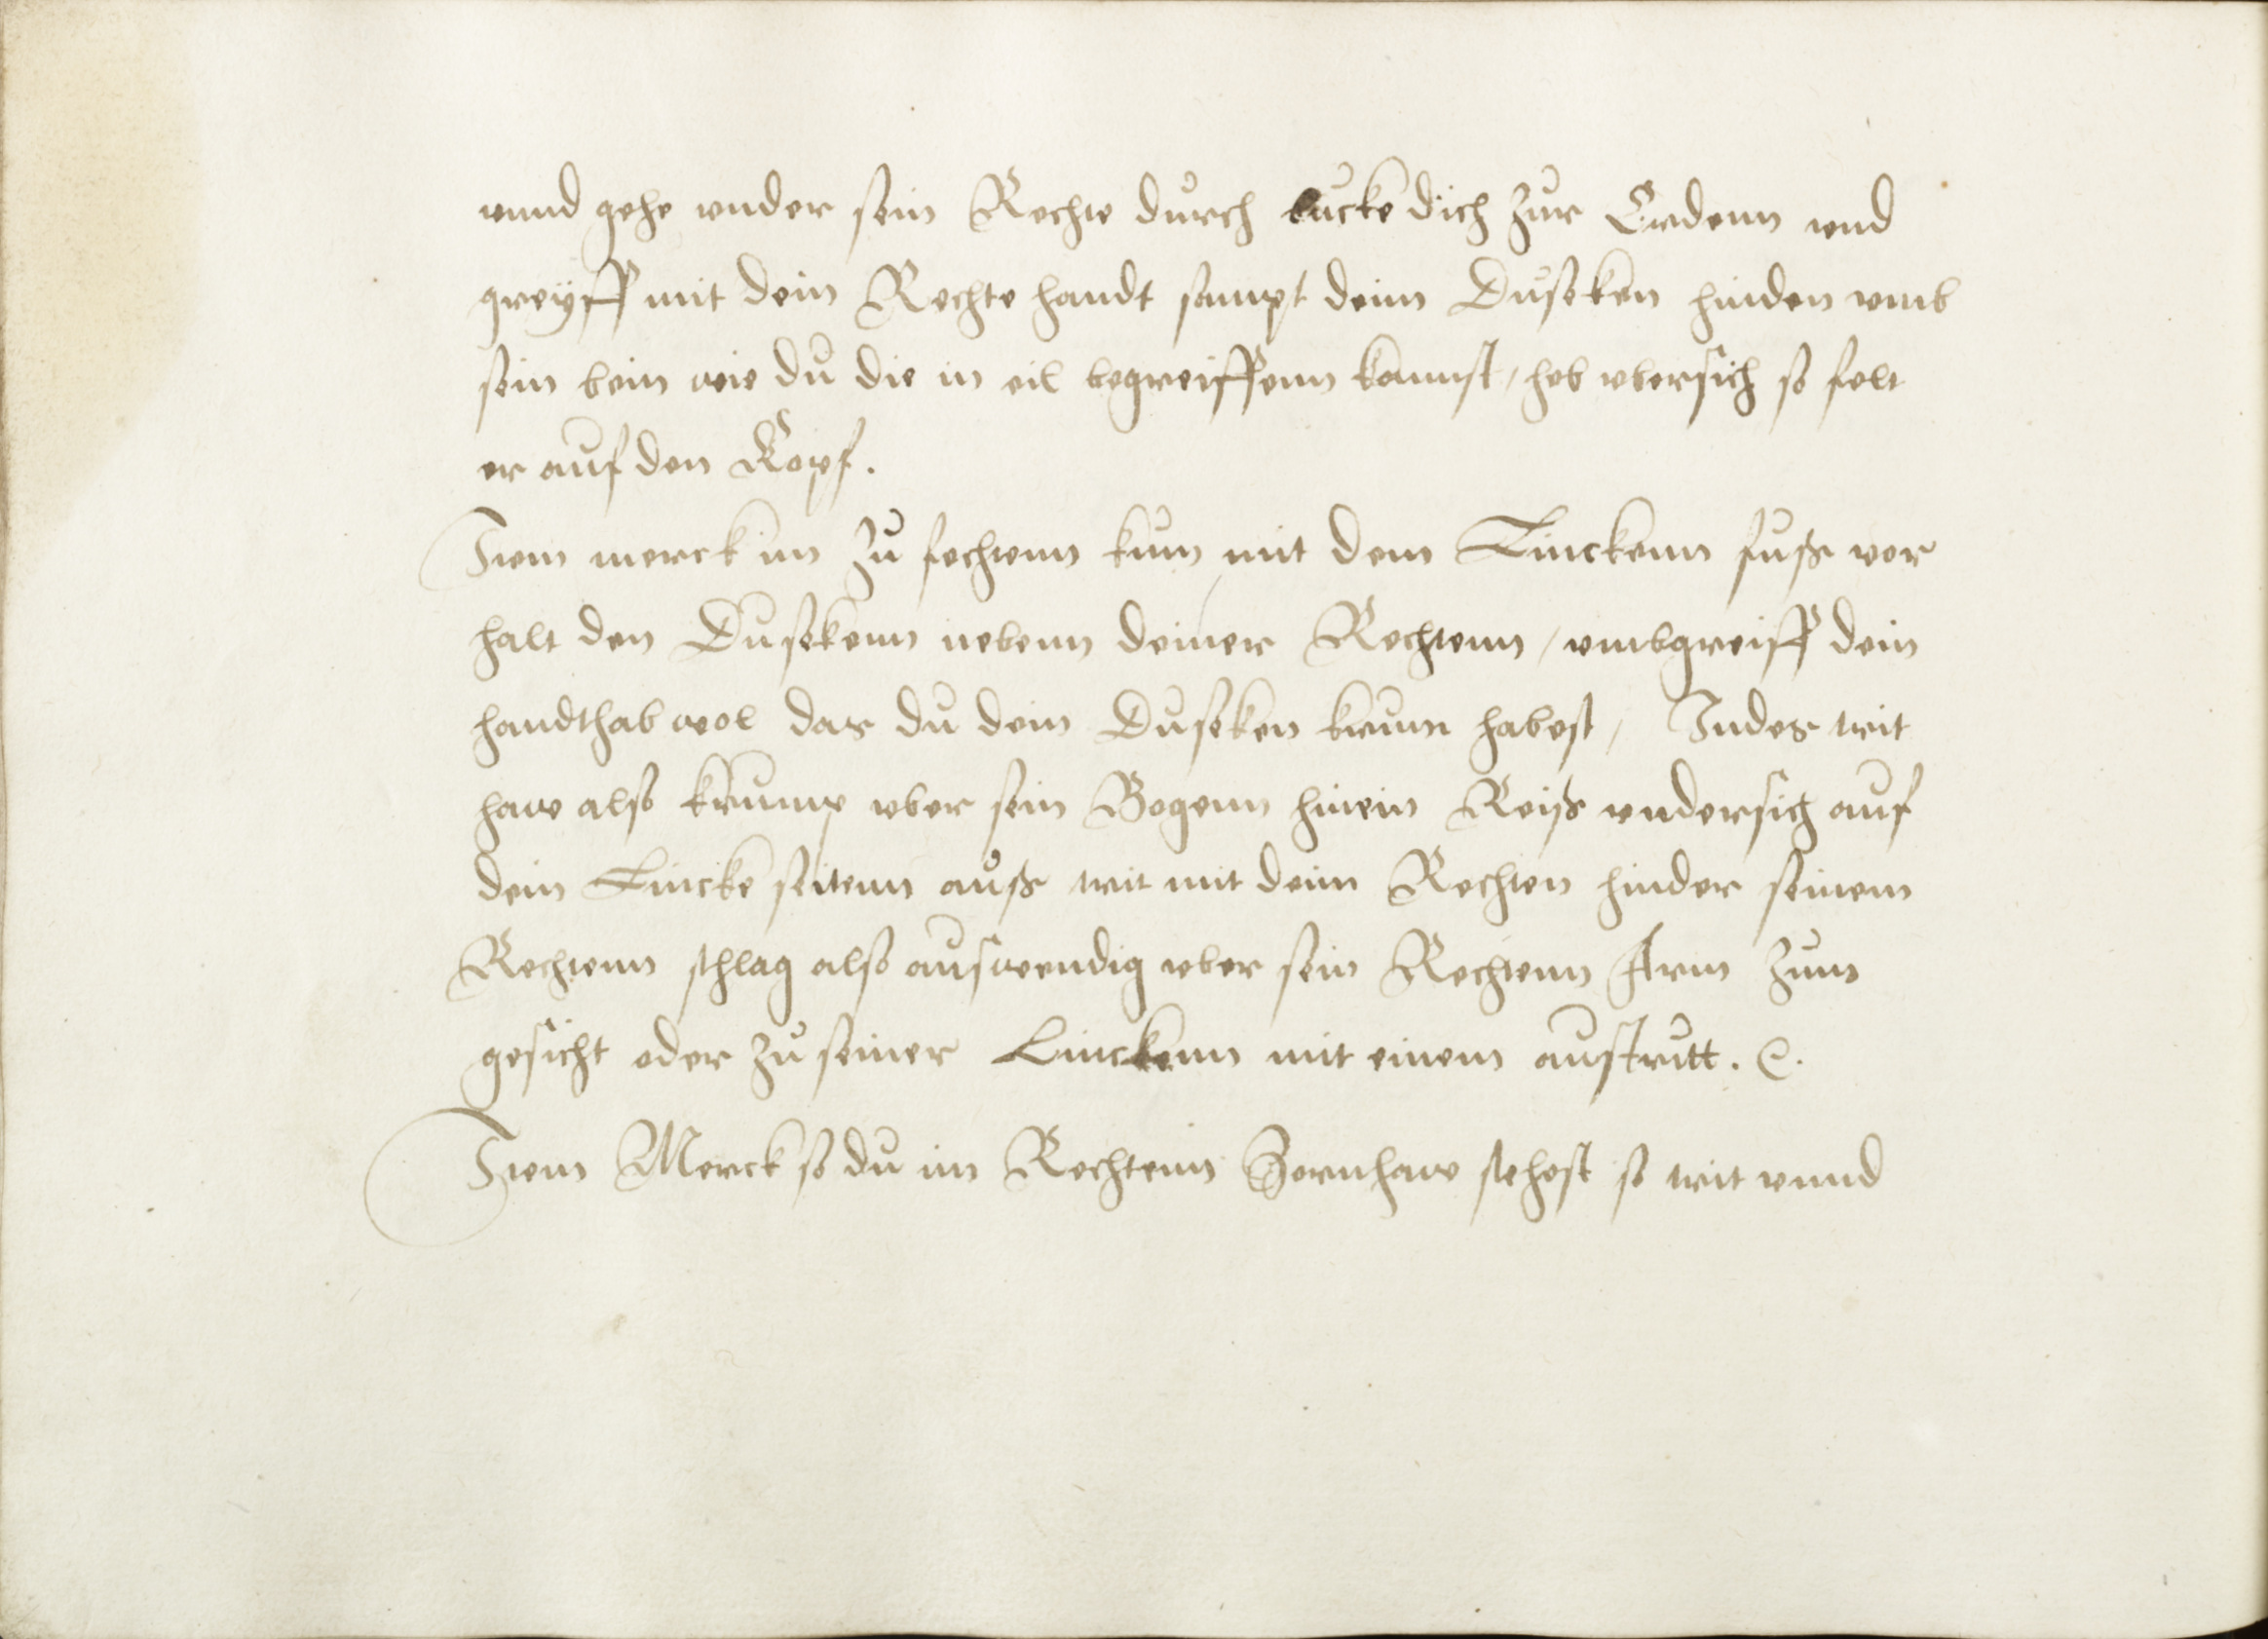 vnnd gehe vnder sein Rechte durch bucke dich zur Erdenn vnd
greÿff mit dein Rechte handt sampt deim Duseken hinden vmb
sein bein wie du die in eil begreiffenn kannst / heb vbersich so felt
er auf den Kopf.
Item merck im zu fechtenn kum mit dem Linckenn fuß vor
halt den Dusekenn nebenn deiner Rechtenn / vmbgreiff dein
handthab wol das du dein Duseken krum habest / Indes trit
haw also krump vber sein Bogenn hinein Reiß vndersich auf
dein Lincke seitenn auß trit mit deim Rechten hinder seinem
Rechtenn schlag also auswendig vber sein Rechtenn Arm zum
gesicht oder zu seiner Linckenn mit einem austrutt. E.
Item Merck so du im Rechtenn Zornhaw stehest so trit vnnd